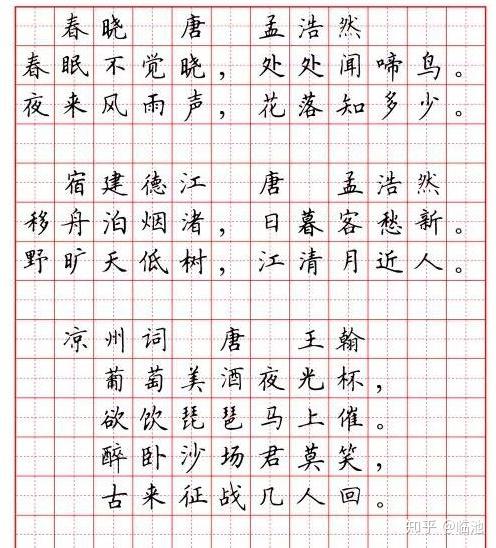 春晓 唐 孟浩然
春眠不觉晓，处处闻啼鸟。
夜来风雨声，花落知多少。
宿建德江 唐 孟浩然
移舟泊烟渚，日暮客愁新。
野旷天低树，江清月近人。
凉州词 唐 王翰
葡萄美酒夜光杯，
欲饮琵琶马上催。
醉卧沙场君莫笑，
古来征战几人回。
知乎 @临池